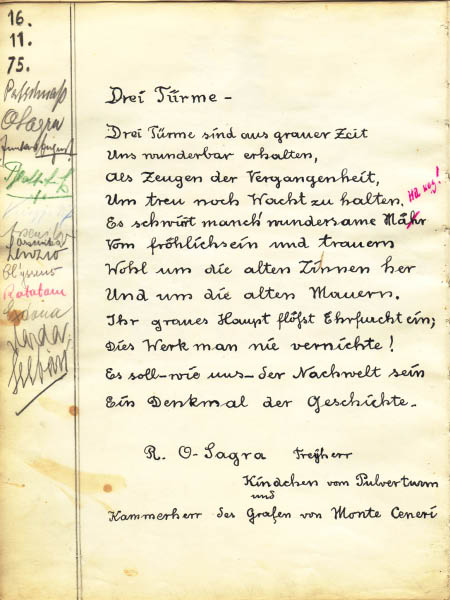 16.
11.
75.
O Sagra
Lenzio
Ratatam
Drei Türme -
Drei Türme sind aus grauer Zeit
Uns wunderbar erhalten,
Als Zeugen der Vergangenheit,
Um treu noch Wacht zu halten.
Es schwirrt manch wundersame Mähr
Vom fröhlichsein und trauern
Wohl um die alten Zinnen her
Und um die alten Mauern.
Ihr graues Haupt flösst Ehrfurcht ein;
Dies Werk man nie vernichte!
Es soll - wie uns - der Nachwelt sein
Ein Denkmal der Geschichte.
R. O-Sagra Freyherr
Kindchen vom Pulverturm
und
Kammerherr des Grafen von Monte Ceneri